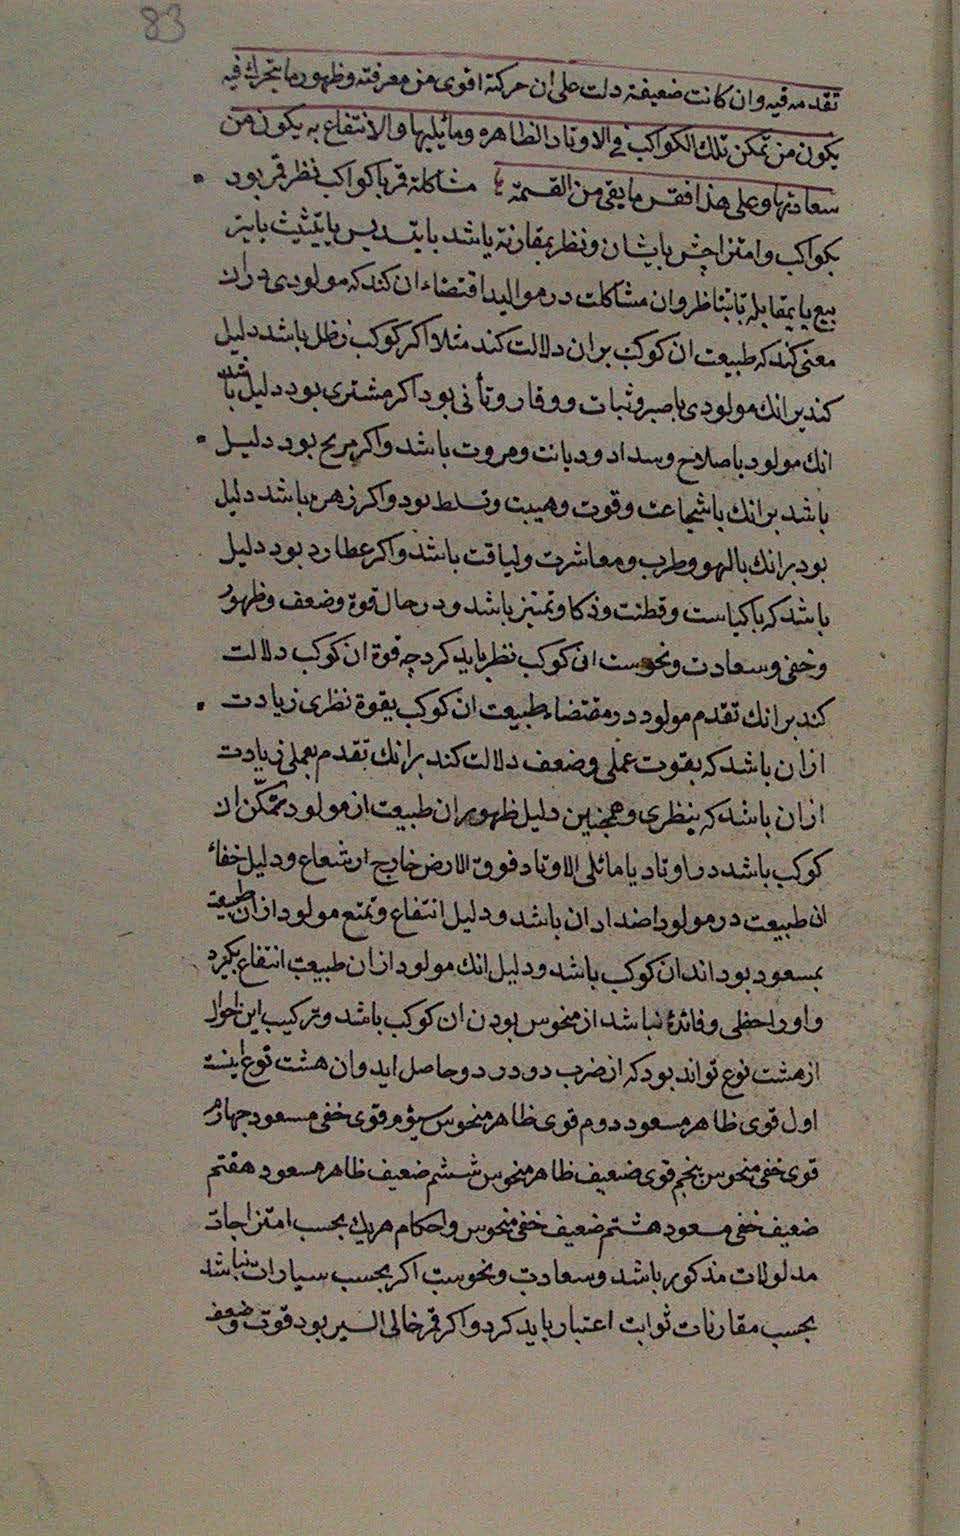 83
تقدمه فیه وان کانت ضعیفة دلت علی ان حرکته اقوی من معرفته وظهور ما یتحرك فیه
یکون من تمکن تلك الکواکب فی الاوتاد الظاهره وما یلیها والانتفاع به یکون من
سعادتها وعلی هذا فقس ما بقی من القسمة مشاکلة قمر با کواکب نظر قمر بود
بکواکب وامتزاجش بایشان ونظر بمقارنة باشد یا بتسدیس یا بتثلیث یا بتر
بیع یا بمقابله یا بتناظر وان مشاکلت در موالید اقتضاء ان کند که مولودی دران
معنی کند که طبیعت ان کوکب بران دلالت کند مثلا اکر کوکب زحل باشد دلیل
کند برانك مولودی با صبر وثبات ووقار وتأنی بود اکر مشتری بود دلیل باشد
انك مولود باصلاح وسداد ودیانت ومروت باشد واکر مریخ بود دلیل
باشد برانك باشجاعت وقوت وهیبت وتسلط بود واکر زهره باشد دلیل
بود برانك بالهو وطرب ومعاشرت ولیاقت باشد واکر عطارد بود دلیل
باشد که باکیاست وفطنت وذکا وتمییز باشد ودر حال قوة وضعف وظهور
وخفی وسعادت ونحوست ان کوکب نظر باید کرد چه قوة ان کوکب دلالت
کند برانك تقدم مولود در مقتضاء طبیعت ان کوکب بقوة نظری زیادت
ازان باشد که بقوت عملی وضعف دلالت کند برانك تقدم بعملی زیادت
ازان باشد که بنظری وهمچنین دلیل ظهور ان طبیعت از مولود تمکّن ان
کوکب باشد در اوتاد یا مائلی الاوتاد فوق الارض خارج از شعاع ودلیل خفاء
ان طبیعت در مولود اضداد ان باشد ودلیل انتفاع وتمتع مولود ازان طبیعت
بمسعود بود اند ان کوکب باشد ودلیل انك مولود ازان طبیعت انتفاع بکیرد
واو را حظی وفائدۀ نباشد از منحوس بودن ان کوکب باشد وترکیب این احوال
از هشت نوع تواند بود که از ضرب دو در دو حاصل اید وان هشت نوع اینست
اول قوی ظاهر مسعود دوم قوی ظاهر منحوس سیؤم قوی خفی مسعود چهارم
قوی خفی منحوس پنجم قوی ضعیف ظاهر منحوس ششم ضعیف ظاهر مسعود هفتم
ضعیف خفی مسعود هشتم ضعیف خفی منحوس واحکام هریك بحسب امتزاجات
مدلولات مذکور باشد وسعادت ونحوست اکر بحسب سیارات نباشد
بحسب مقارنات ثوابت اعتبار باید کرد واکر قمر خالی السیر بود قوت وضعف